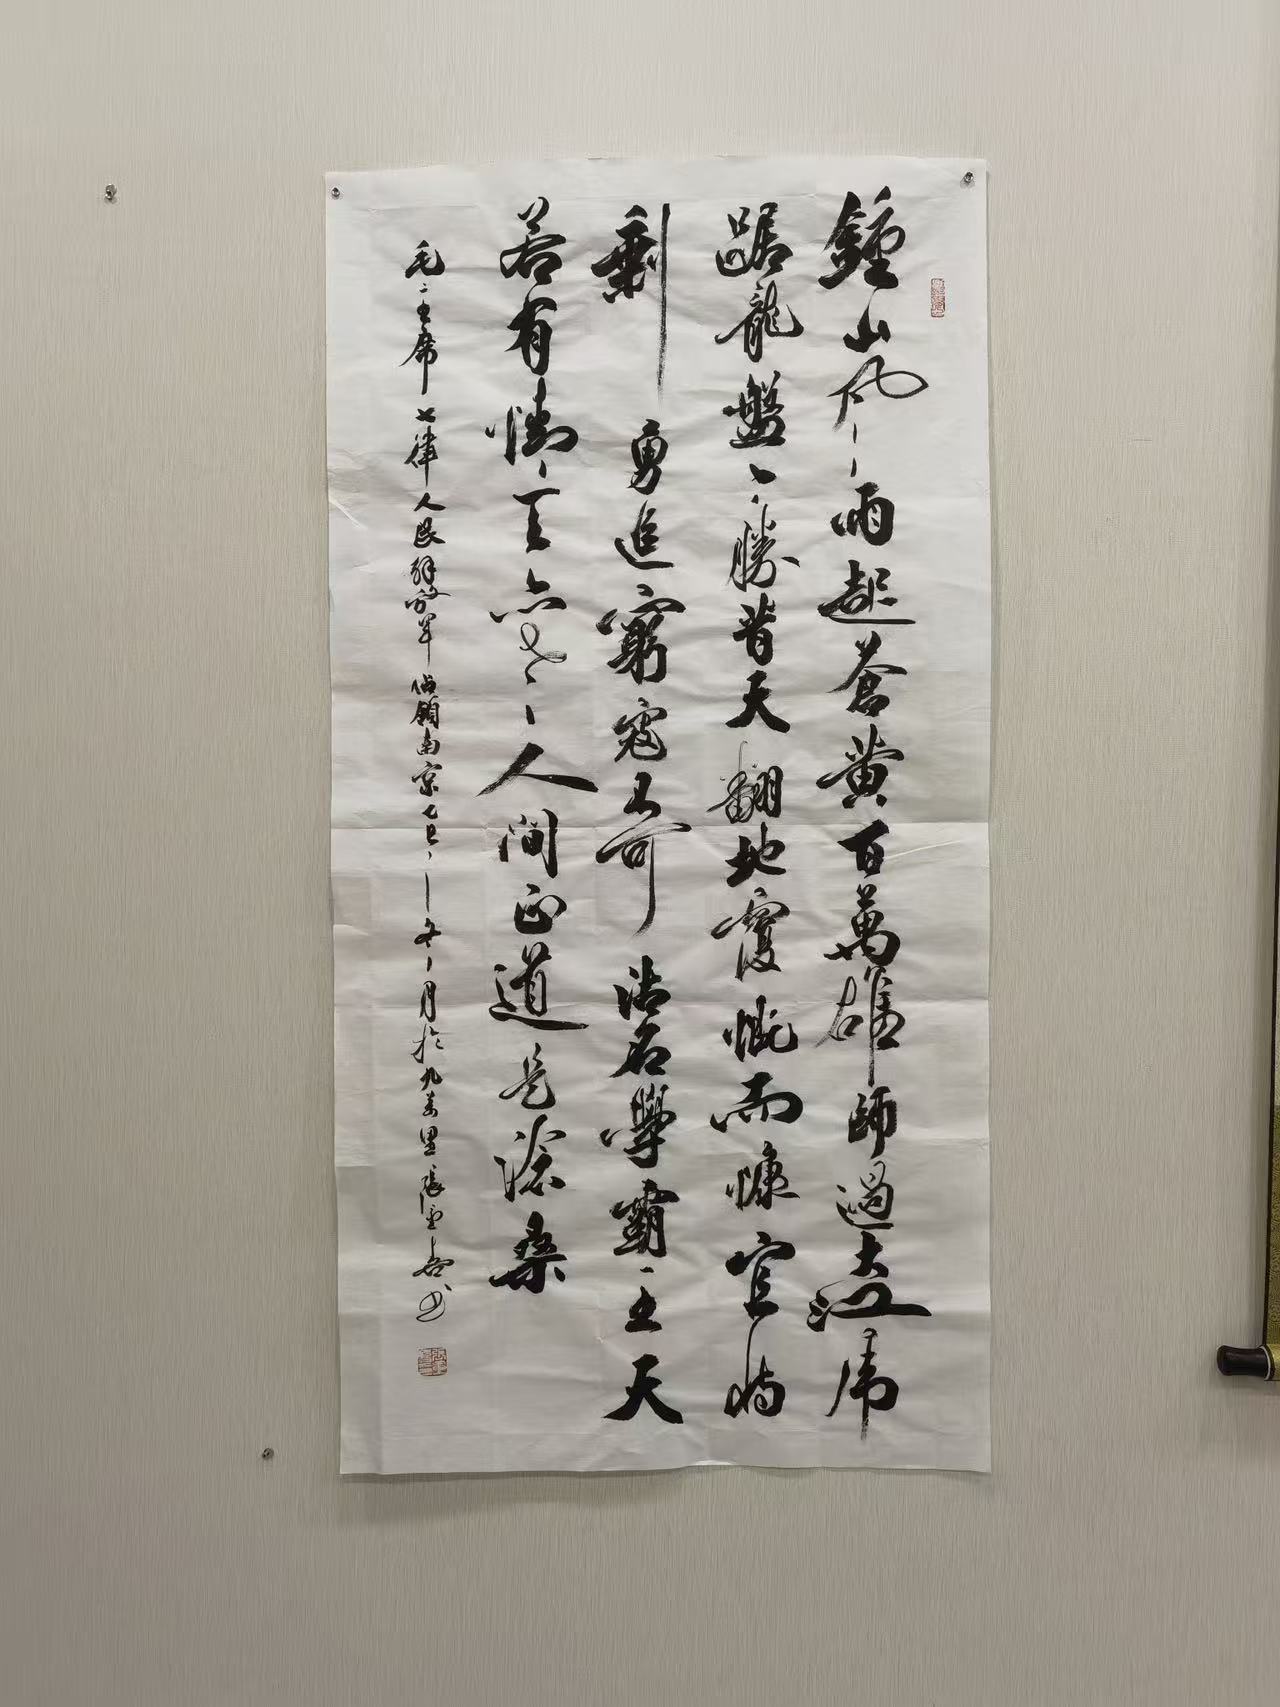 鍾山風雨起蒼黄百萬雄師過大江虎
踞龍盤今勝昔天翻地覆慨而慷宜将
剩勇追窮寇不可沽名學霸王天
若有情天亦老人間正道是滄桑
毛主席七律人民解放军佔領南京 冬月於九萬里張书